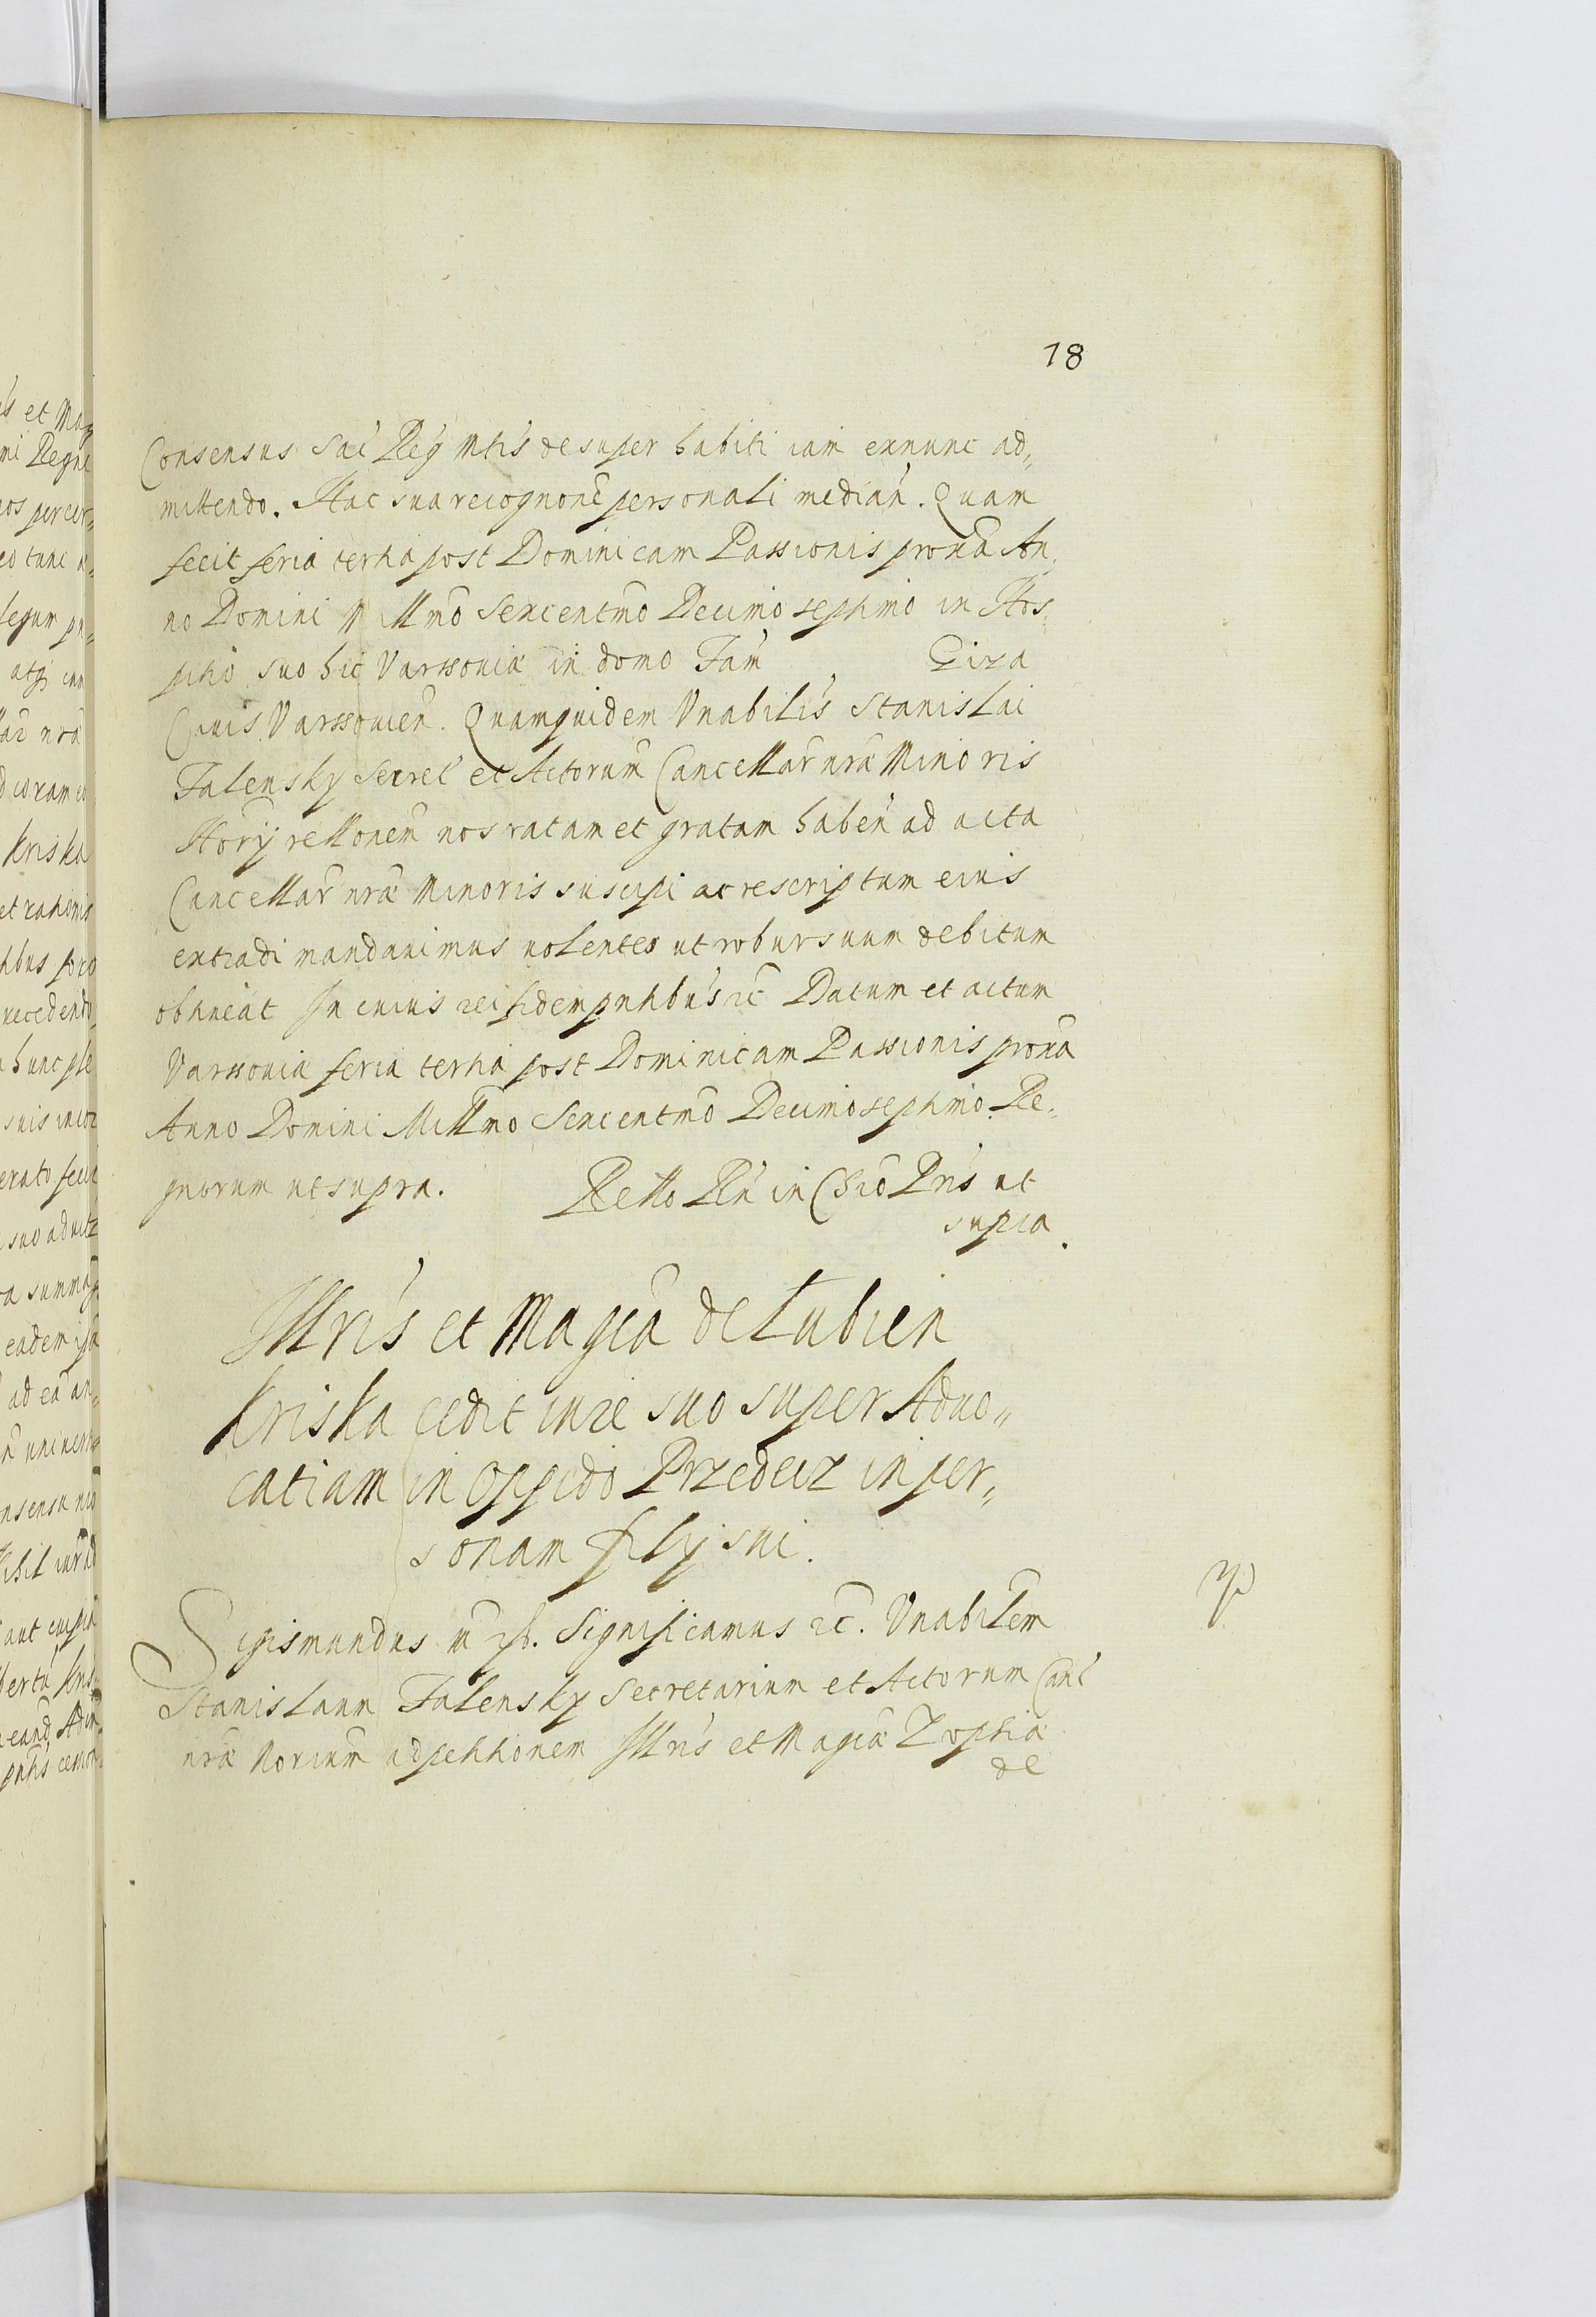 18
Consensus Sac̃ Reg̃ Mtis desuper habiti iam exnunc ad„
mittendo. Hac sua recognonẽ personali median̄. Quam
fecit feria tertia post Dominicam Passionis proxã An„
no Domini Millmõ Sexcentmõ Decimo septimo in Hos„
pitio suo hic Varssouiæ in domo Fam̃ Giza
Ciuis Varssouien̄. Quamquidem Vnabilis Stanislai
Falensky Secret̃ et Actorum̃ Cancellar̃ nrã Minoris
Notrij rellonem̃ nos ratam et gratam haben̄ ad acta
Cancellar̃ nræ Minoris suscipi ac rescriptum eius
extradi mandauimus uolentes ut robur suum debitum
obtineat In cuius rei fidem pntibus ꝛc̃ Datum et actum
Varssouiæ feria tertia post Dominicam Passionis proxã
Anno Domini Millmo Sexcentmõ Decimo septimo Re„
gnorum ut supra. Rello Rñ in Chrõ Pris ut
supra.
Illris et Magcã de Lubien
Kriska cedit iure suo super Aduo„
catiam in Oppido Przedecz in per„
sonam filij sui.
Sigismundus ꝛc̃. Significamus ꝛc̃. Vnabilem̃
Stanislaum Falensky Secretarium et Actorum Canc̃
nræ Norium̃ ad petitionem Illris et Magcæ Zophiæ
de